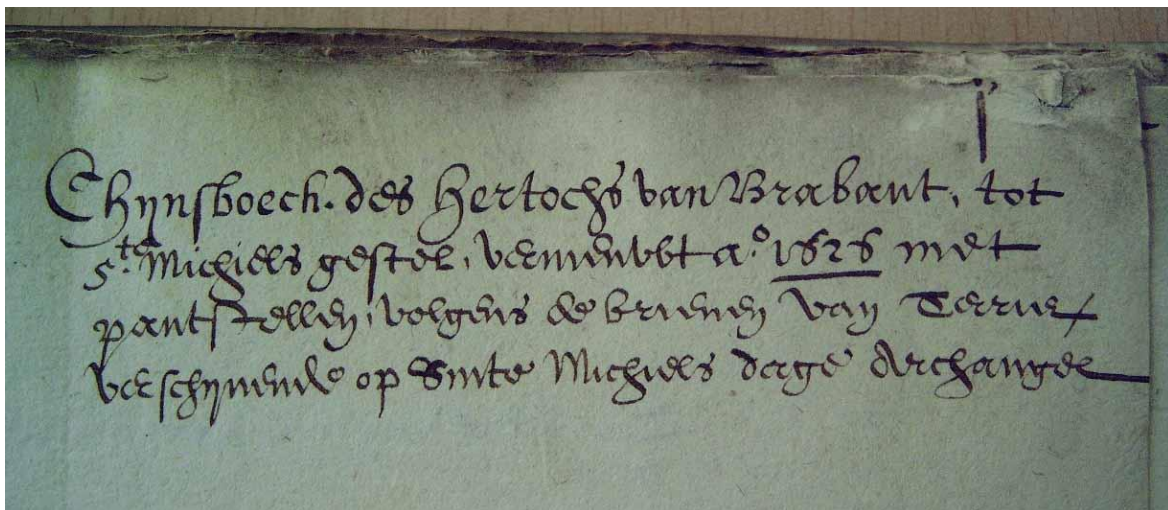 j
Chijnsboeck. des Hertochs van Brabant, tot
S.te Michiels gestel, vernieuwt a.o 1626 met
pantstellen, volgens de brieven van Terrier
verschijnende op Sinte Michiels dage Archangel